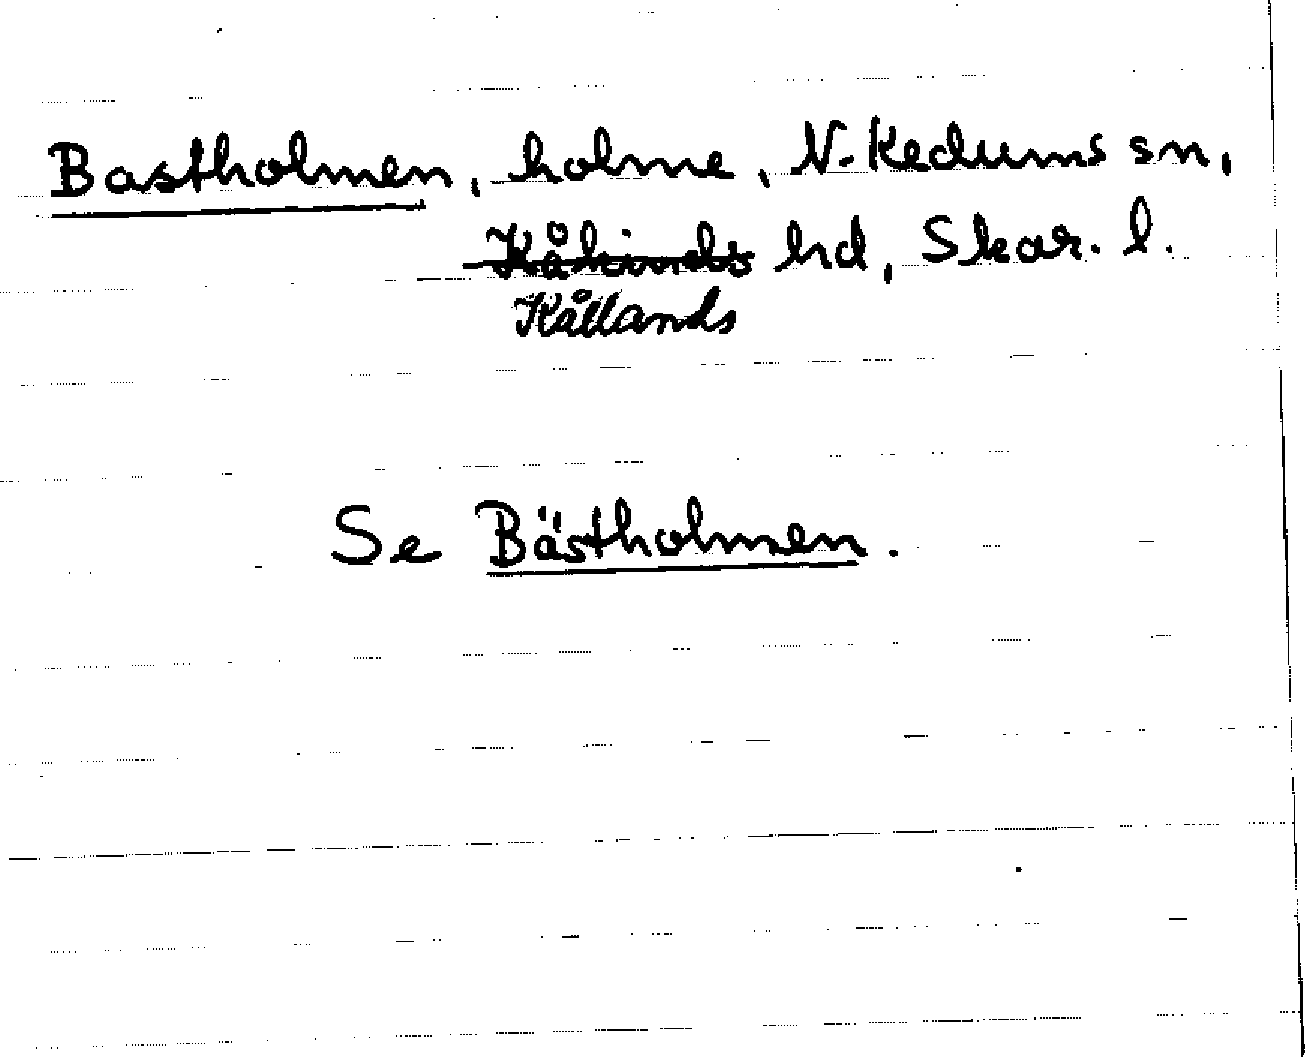 Bastholmen, holme, N. Kedums sn,
Kåkinds hd, Skar. l.
Kållands
Se Bästholmen.